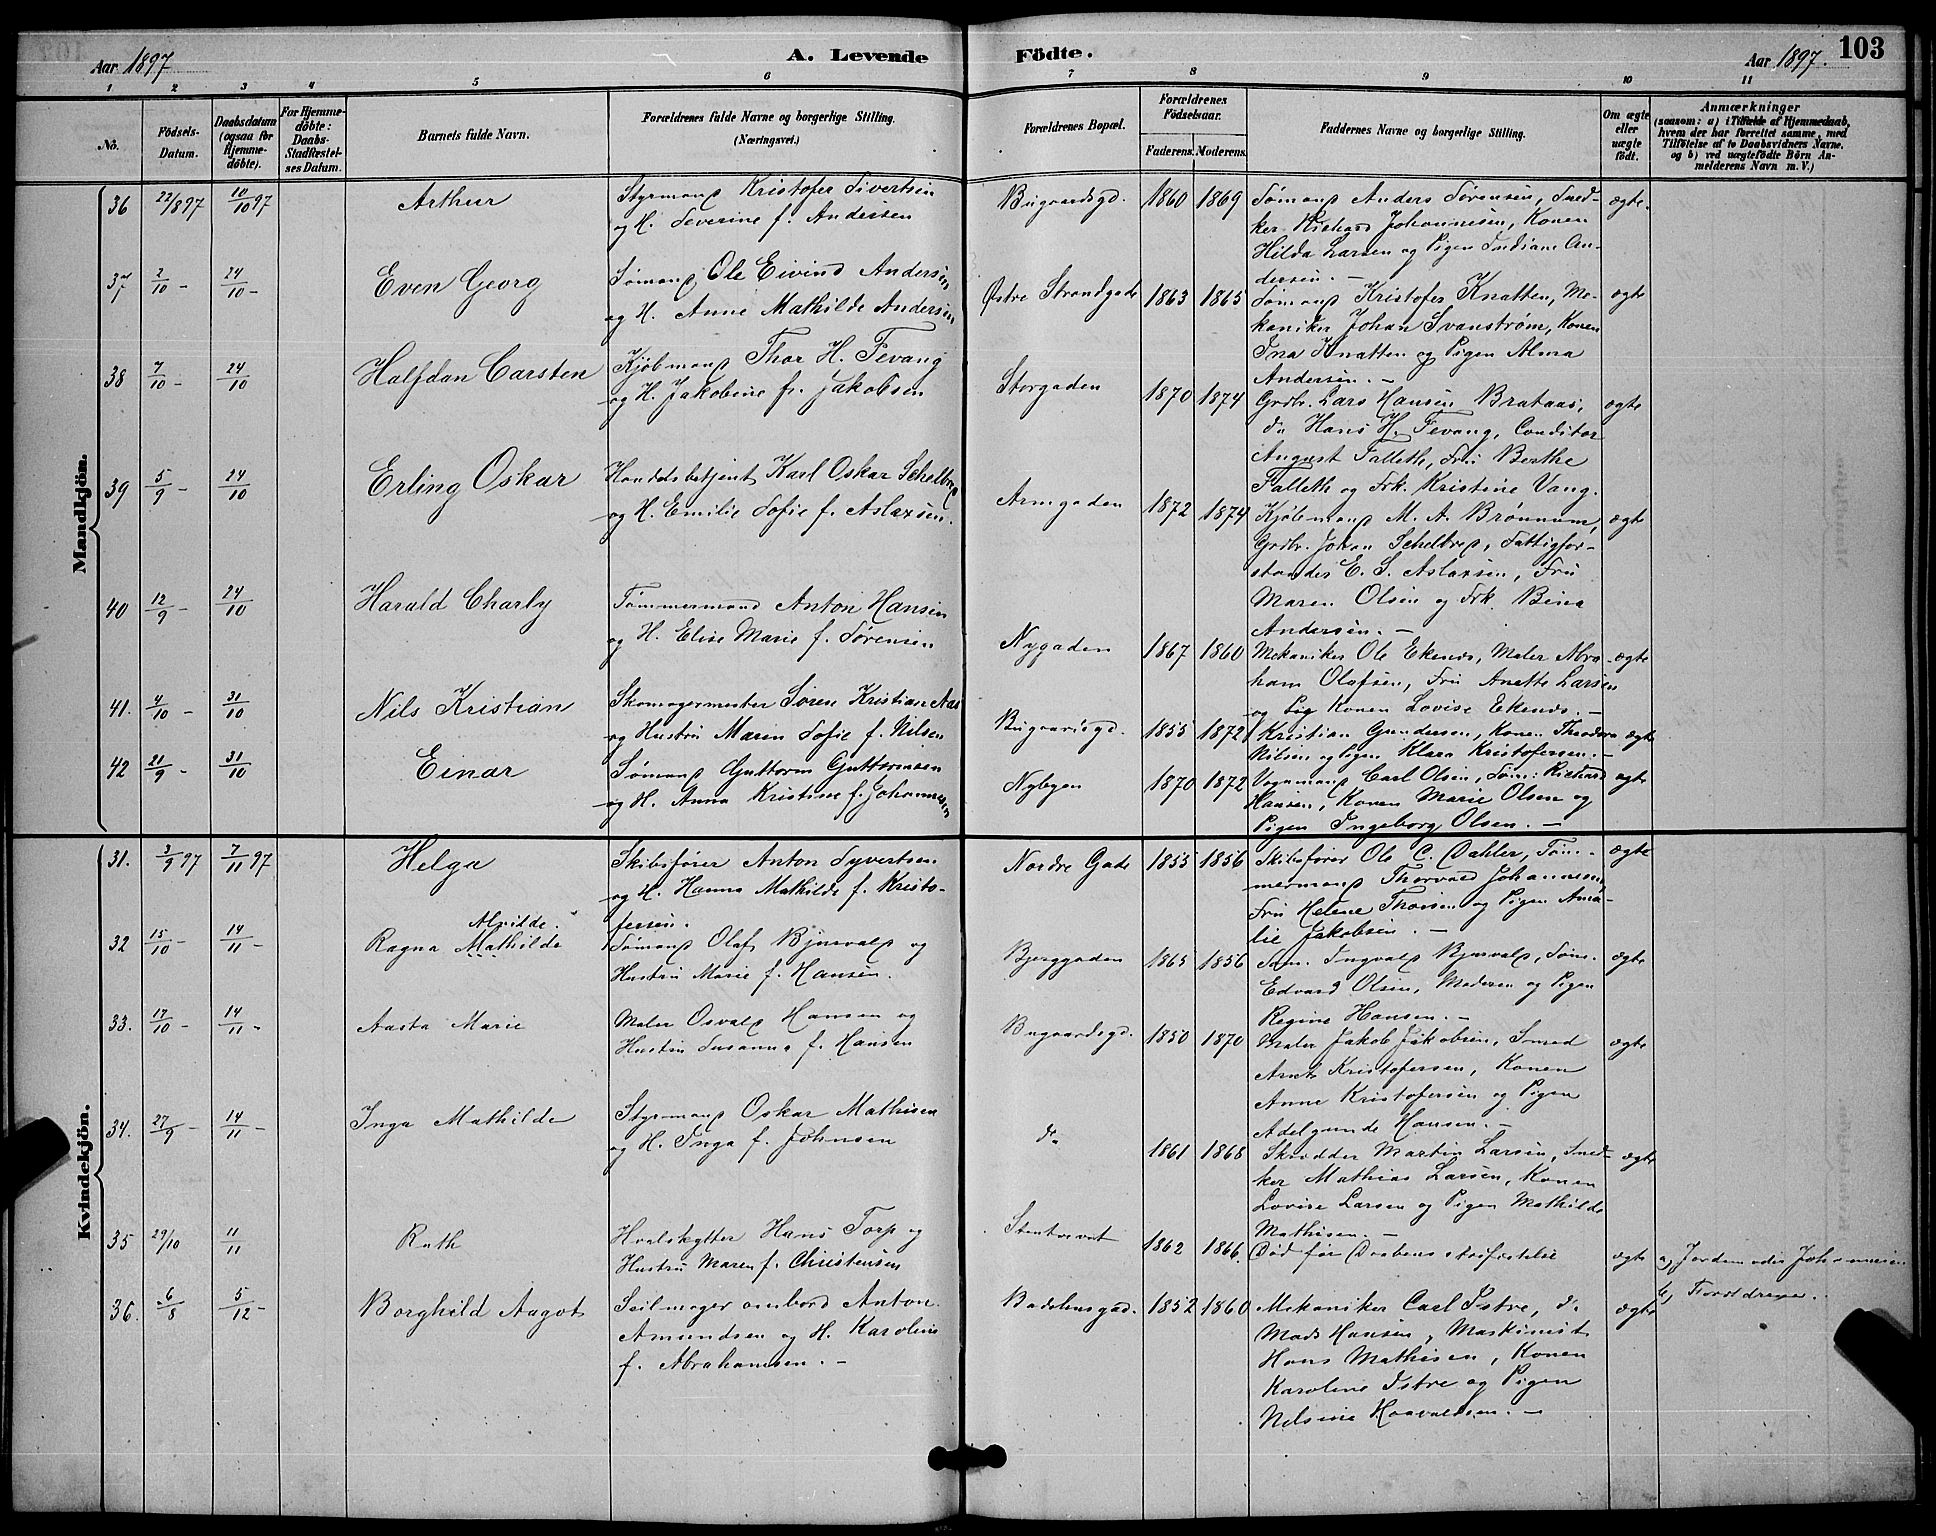 Aar 1897
A. Levende Födte.
Aar 1897.
103
1 2 3 4 5 6 7 8 9 10 11
No.
Födsels-Datum.
Daabsdatum (ogsaa for Hjemmedöbte).
For Hjemmedöbte: Daabs-Stadfæstelses Datum.
Barnets fulde Navn.
Forældrenes fulde Navne og borgerlige Stilling. (Næringsvei.)
Forældrenes Bopæl.
Forældrenes Födselsaar.
Faderens. Moderens.
Faddernes Navne og borgerlige Stilling.
Om ægte eller uægte födt.
Anmærkninger
(saasom: a) i Tilfælde af Hjemmedaab,
hvem der har forrettet samme, med
Tilföielse af to Daabsvidners Navne,
og b) ved uægtefödte Börn An-
melderens Navn m. V.)
Mandkjön.
36 22/8 97 10/10 97 Arthur
Styrmand Kristofer Sivertsen
og H. Severine f. Andersen
Bugaardsgd. 1860 1869
Sømand Anders Sørensen, Sned-
ker Richard Johannesen, Konen
Hilda Larsen og Pigen Indiane An-
dersen. —
ægte.
37 2/10 - 24/10 - Even Georg
Sømand Ole Eivind Andersen
og H. Anne Mathilde Andersen
Østre Strandgade 1863 1865
Sømand Kristofer Knatten, Me-
kaniker Johan Svanstrøm, Konen
Ina Knatten og Pigen Alma
Andersen. —
ægte
38 7/10 - 24/10 Halfdan Carsten
Kjøbmand Thor H. Fevang
og H. Jakobine f. Jakobsen
Storgaden 1870 1874
Grdbr. Lars Hansen Brataas,
do Hans H. Fevang, Conditor
August Falleth, Fru Berthe
Falleth og Frk. Kristine Vang.
ægte
39 5/9 - 24/10 Erling Oskar
Handelsbetjent Karl Oskar Schelbred
og H. Emilie Sofie f. Aslaxsen.
Armgaden 1872 1874
Kjøbmand M. A. Brønnum,
Grdbr. Johan Schelbred, Fattigfor-
stander E. S. Aslaxsen, Fru
Maren Olsen og Frk. Bina
Andersen. —
ægte
40 12/9 - 24/10 Harald Charly
Tømmermand Anton Hansen
og H. Elise Marie f. Sørensen
Nygaden 1867 1860
Mekaniker Ole Ekenes, Maler Abra-
ham Olafsen, Fru Anette Larsen
og Konen Lovise Ekenes. —
ægte
41. 4/10 - 31/10 Nils Kristian
Skomagermester Søren Kristian Aas
og Hustru Maren Sofie f. Nilsen
Bugaardsgd. 1855 1872
Kristian Gundersen, Konen Theodora
Nilsen og Pigen Klara Kristofersen. —
ægte
42 21/9 - 31/10 Einar
Sømand Guttorm Guttormsen
og H. Anna Kristine f. Johannesen
Nybyen 1870 1872
Vognmand Carl Olsen, Søm: Richard
Hansen, Konen Marie Olsen og
Pigen Ingeborg Olsen. —
ægte
Kvindekjön.
31. 3/9 97 7/11 97 Helga
Skibsfører Anton Syvertsen
og H. Hanna Mathilde f. Kristo-
fersen.
Nordre Gade 1855 1856
Skibsfører Ole C. Dahler, Tøm-
mermand Thorvald Johannesen,
Fru Helene Thorsen og Pigen Ama-
lie Jakobsen. —
ægte
32 15/10 - 14/11 - Ragna Mathilde Alvilde.
Sømand Olaf Bjusvald og
Hustru Marie f. Hansen.
Bjerggaden 1865 1856
Søm. Ingvald Bjusvald, Søm.
Edvard Olsen, Moderen og Pigen
Regine Hansen. —
ægte
33. 17/10 - 14/11 - Aasta Marie
Maler Osvald Hansen og
Hustru Susanna f. Hansen
Bugaardsgd. 1850 1870
Maler Jakob Jakobsen, Smed
Arnt Kristofersen, Konen
Anne Kristofersen og Pigen
Adelgunde Hansen. —
ægte
34. 27/9 - 14/11 - Inga Mathilde
Styrmand Oskar Mathisen
og H. Inga f. Johnsen
do 1861 1868
Skrædder Martin Larsen, Sned-
ker Mathias Larsen, Konen
Lovise Larsen og Pigen Mathilde
Mathisen. —
ægte
35 29/10 11/11 Ruth
Hvalskytter Hans Torp og
Hustru Maren f. Christensen
1862 1866.
Død før Daabens stadfæstelse
ægte
a) Jordemoder Johannesen
b)
36. 6/8 5/12 - Borghild Aagot
Seilmager ombord Anton
Amundsen og H. Karoline
f. Abrahamsen. —
1852 1860
Mekaniker Carl Istre, do
Mads Hansen, Maskinist
Hans Mathisen, Konen
Karoline Istre og Pigen
Nelsine Haavaldsen. —
ægte